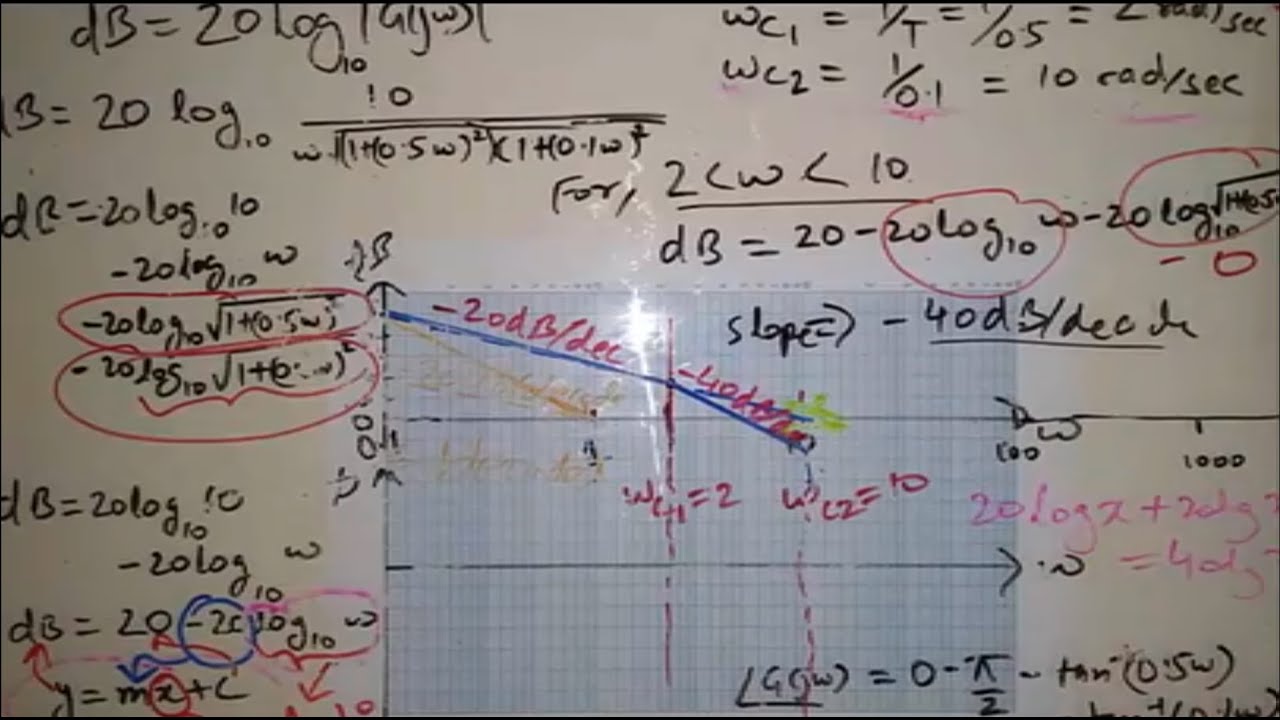 dB = 20 log₁₀ |G(jω)|
dB = 20 log₁₀ 10 / ω√(1+(0.5ω)²)(1+(0.1ω)²
dB = 20 log₁₀ 10
- 20 log₁₀ ω
- 20 log₁₀ √1+(0.5ω)²
- 20 log₁₀ √1+(0. ω)²
dB = 20 log₁₀ 10
- 20 log₁₀ ω
dB = 20 - 20 log₁₀ ω
y = mx + c
ωc₁ = 1/T = 1/0.5 = 2 rad/sec
ωc₂ = 1/0.1 = 10 rad/sec
For, 2 < ω < 10
dB = 20 - 20 log₁₀ ω - 20 log₁₀ √1+(0.5
- 0
slope ⇒ - 40 dB/dec
dB
-20dB/dec
-40dB/dec
0
0.1
ωc₁ = 2
ωc₂ = 10
100
ω
1000
20 log x + 20 log
= 40 log
ω
∠G(jω) = 0 - π/2 - tan⁻(0.5ω)
tan⁻¹(0.1ω)